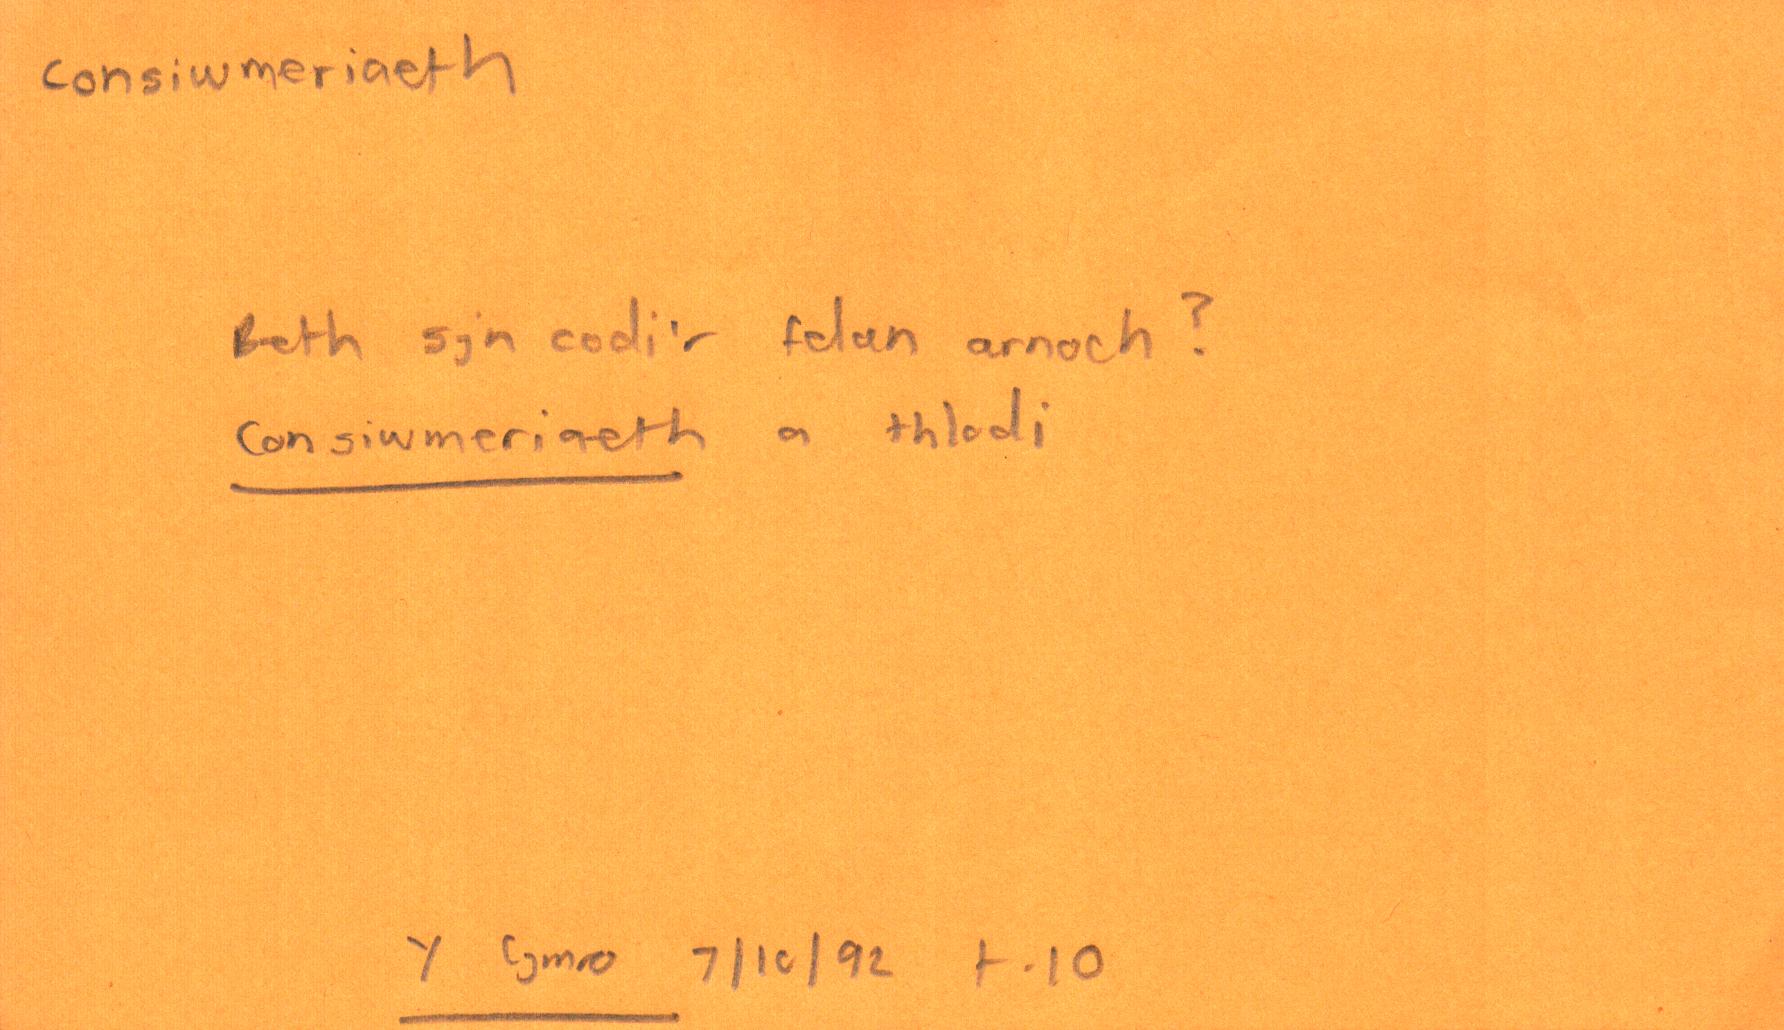 Consiwmeriaeth
Beth sy'n codi'r felan arnoch?
Consiwmeriaeth a thlodi
Y Cymro 7/10/92 t.10